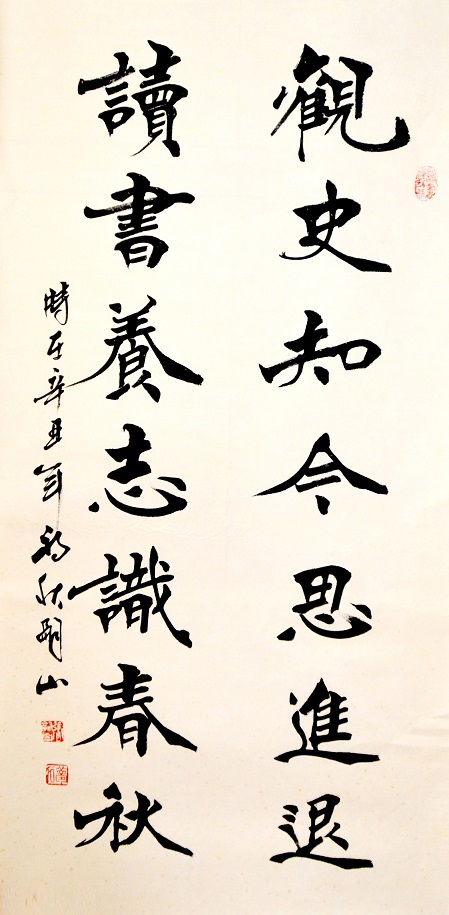 觀史知今思進退
讀書養志識春秋
時在辛丑年初秋朝山